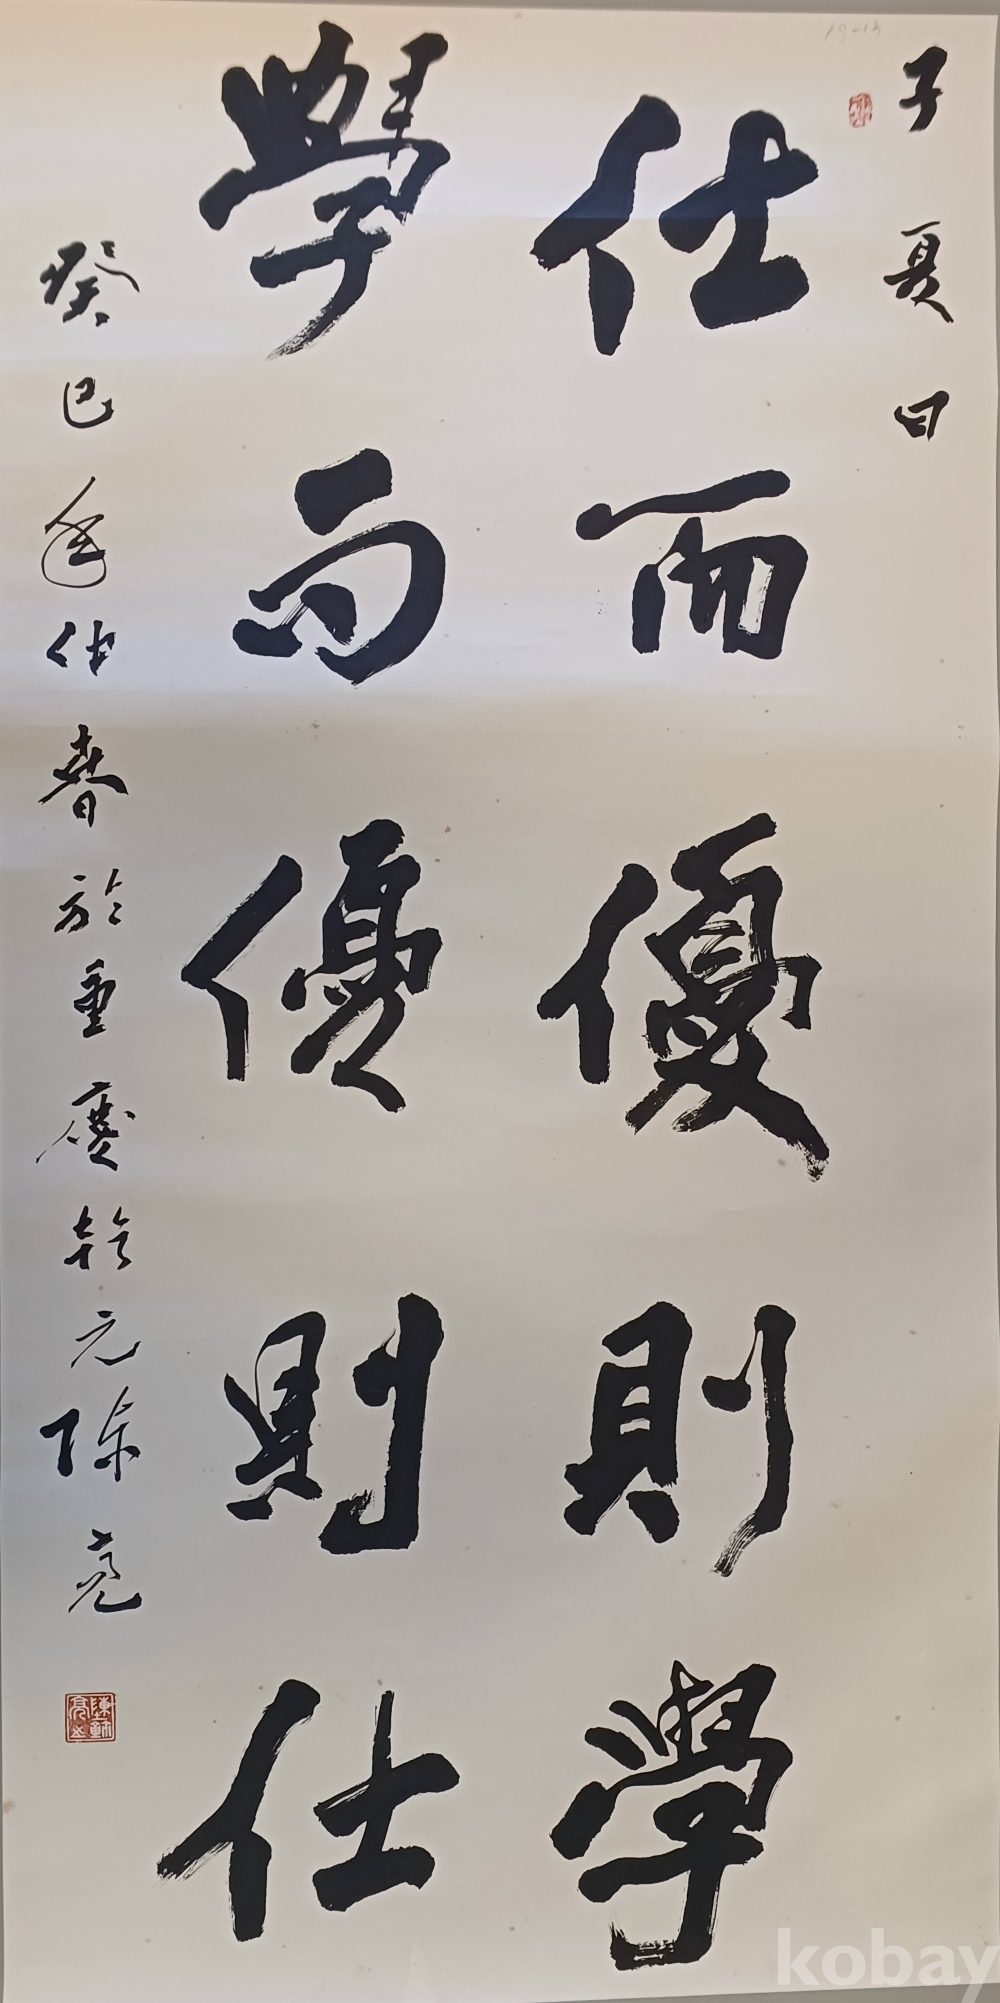 子夏曰
仕而優則學
學而優則仕
癸巳年仲春於重慶乾元陳亮
19-13
kobay